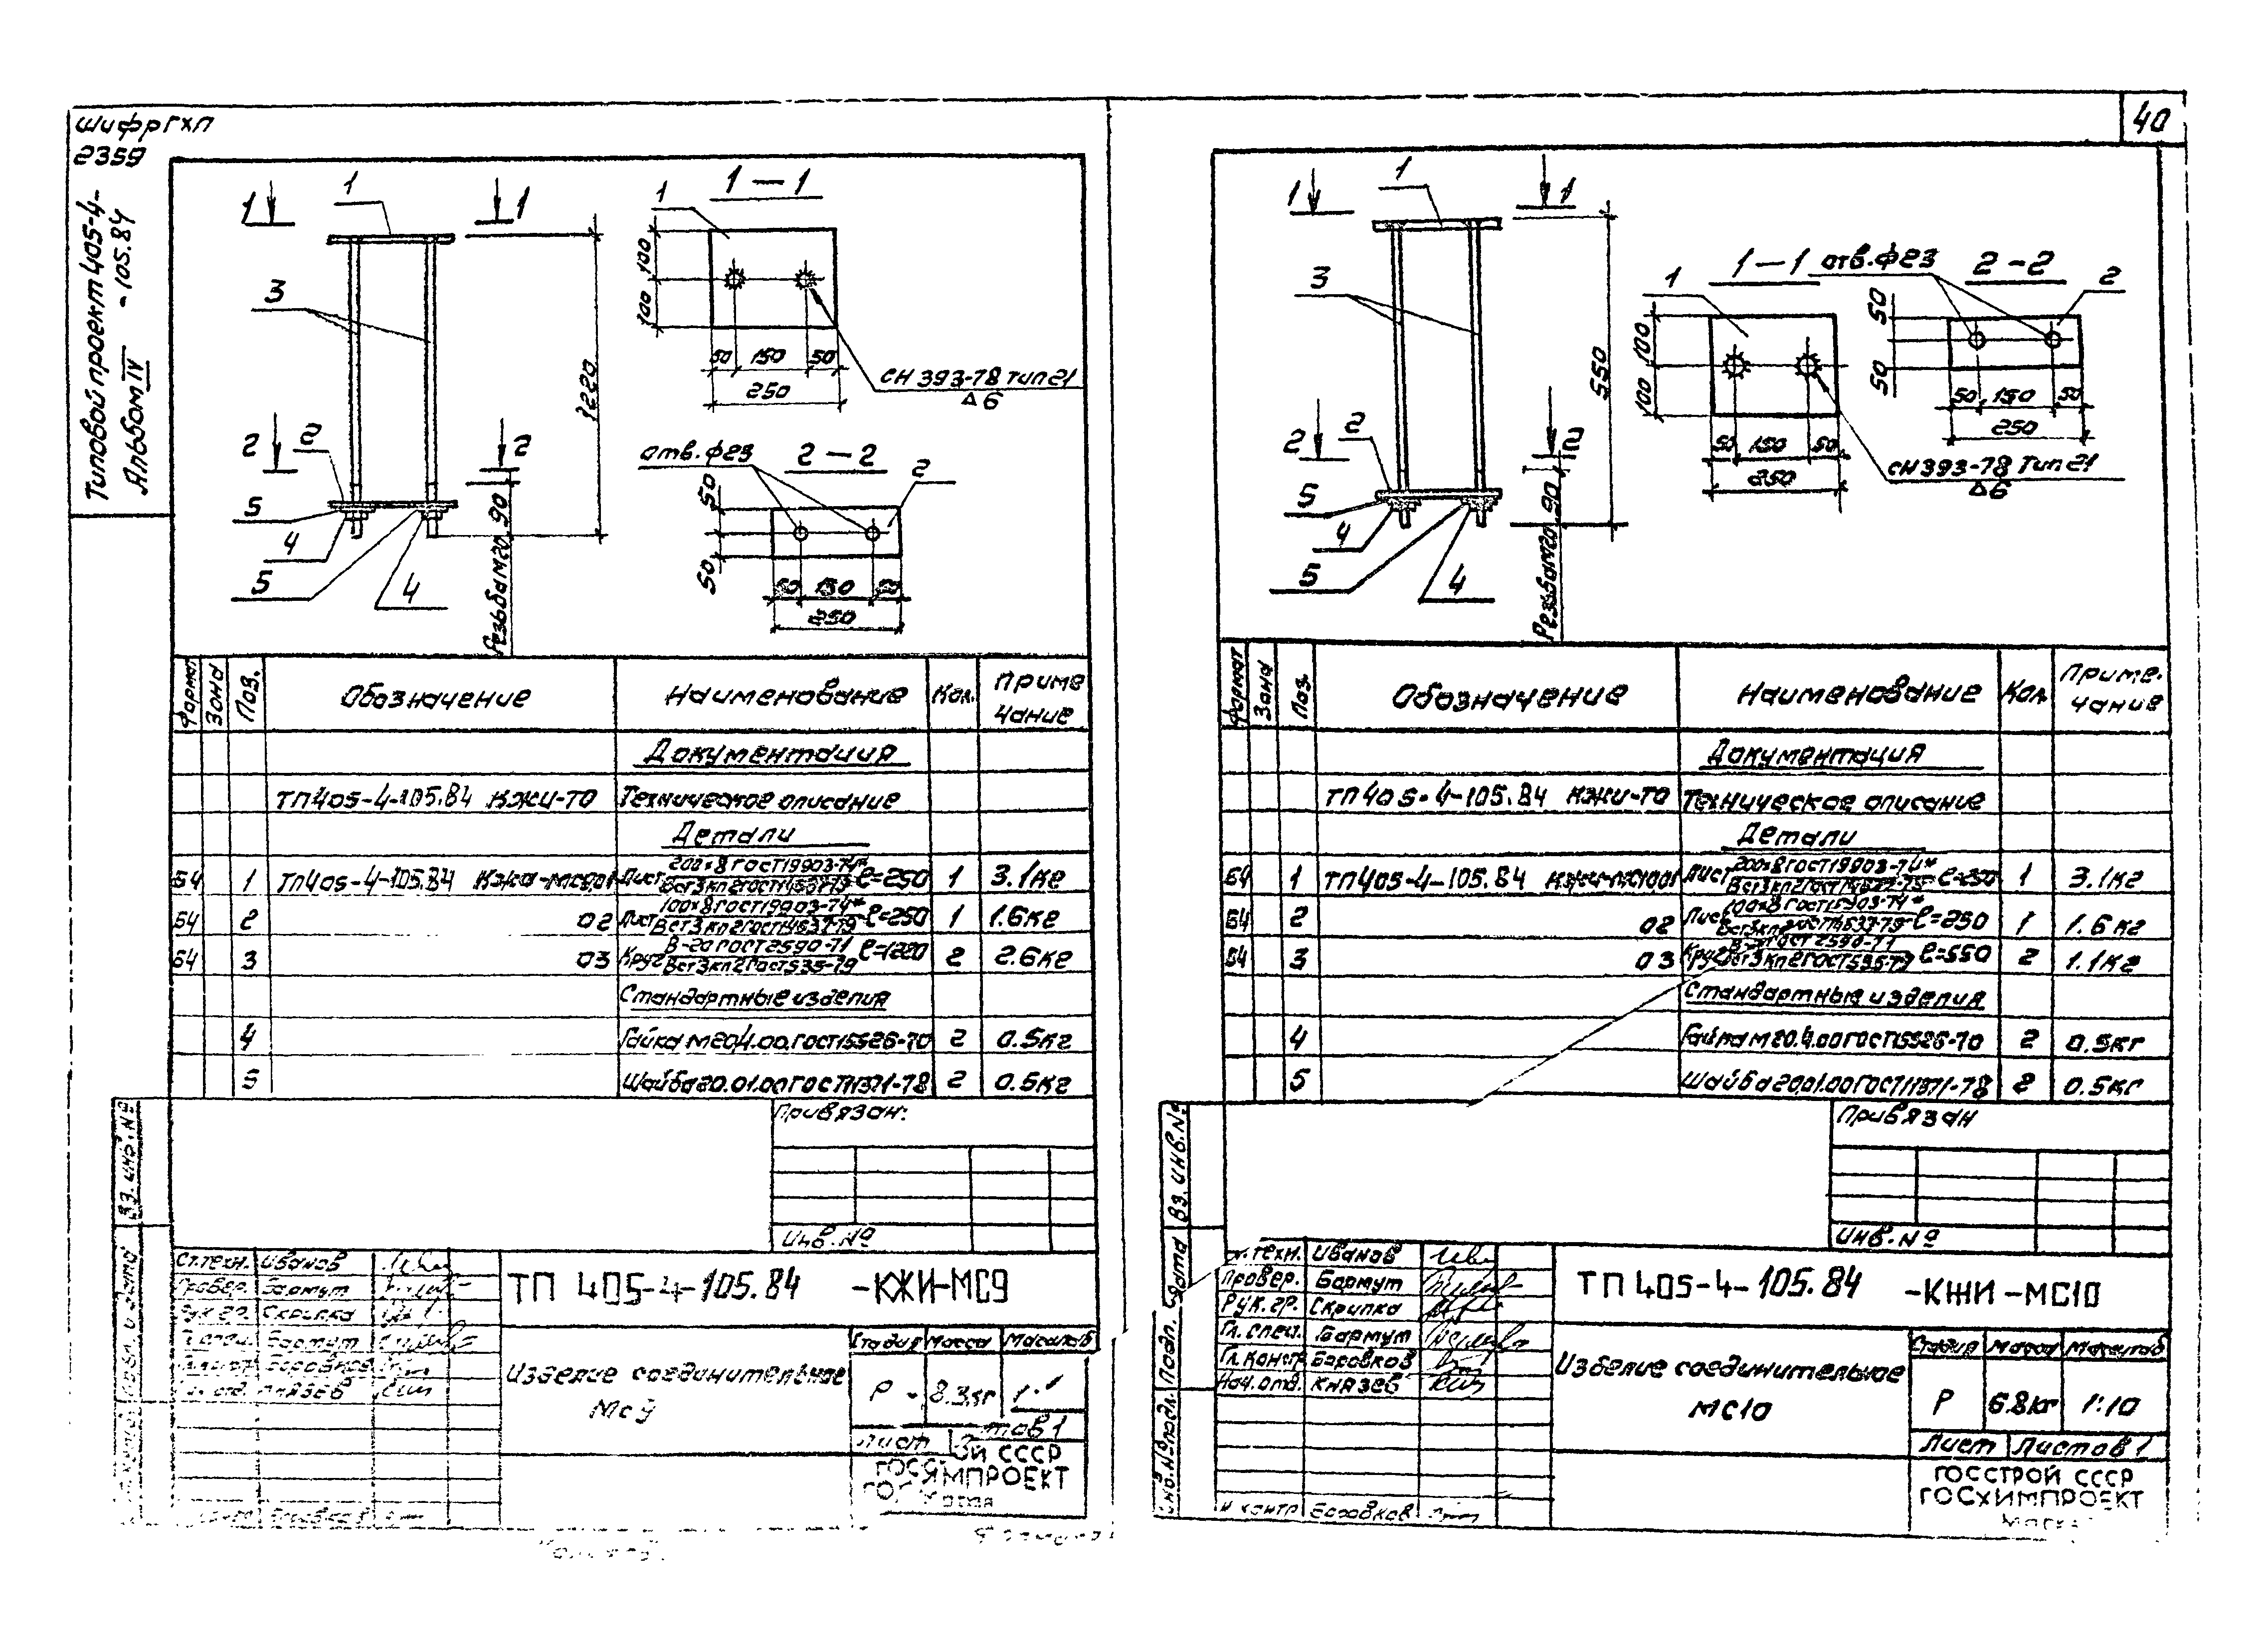 Шифр ГХП
2359
40
Типовой проект 405-4-
-105.84
Альбом IV
1 1 1
3
1220
2 2 2
5
4
5 4
Резьба М20 90
1 1-1
100
100
50 150 50
250
СН 393-78 Тип 21
Δ6
отв.ф23 2-2 2
50
50
50 150 50
250
Формат Зона Поз. Обозначение Наименование Кол. Приме
чание
Документация
ТП405-4-105.84 КЖИ-ТО Техническое описание
Детали
200х8 ГОСТ19903-74*
Б4 1 ТП405-4-105.84 КЖИ-МС9 Лист ℓ=250 1 3.1кг
ВСт3кп2ГОСТ14637-79
100х8 ГОСТ19903-74*
Б4 2 02 Лист ℓ=250 1 1.6кг
ВСт3кп2ГОСТ14637-79
В-20 ГОСТ2590-71
Б4 3 03 Круг ℓ=1220 2 2.6кг
ВСт3кп2ГОСТ535-79
Стандартные изделия
4 Гайка М20.4.00.ГОСТ15526-70 2 0.5кг
5 Шайба 20.01.00 ГОСТ11371-78 2 0.5кг
Привязан:
Инв.№
Вз. инв. №
Подп. и дата
Ст.техн. Иванов
Провер. Бармут
Рук.гр. Скрипка
Гл.спец. Бармут
Боровков
Князев
ТП 405-4-105.84 -КЖИ-МС9
Изделие соединительное
МС9
Стадия Масса Масштаб
Р 8.3кг
Лист
ГОССТРОЙ СССР
ГОСХИМПРОЕКТ
1 1 1
3
550
2 2 2
5
4
5 4
Резьба М20 90
1 1-1 отв.ф23 2-2 2
100
100
50 150 50
250
50
50
50 150 50
250
СН 393-78 Тип 21
Δ6
Формат Зона Поз. Обозначение Наименование Кол. Приме-
чание
Документация
ТП405-4-105.84 КЖИ-ТО Техническое описание
Детали
200х8 ГОСТ19903-74*
Б4 1 ТП405-4-105.84 КЖИ-МС1001 Лист ℓ=250 1 3.1кг
ВСт3кп2ГОСТ14637-79
100х8 ГОСТ19903-74*
Б4 2 02 Лист ℓ=250 1 1.6кг
ВСт3кп2ГОСТ14637-79
В-20 ГОСТ2590-71
Б4 3 03 Круг ℓ=550 2 1.1кг
ВСт3кп2ГОСТ535-79
Стандартные изделия
4 Гайка М20.4.00 ГОСТ15526-70 2 0.5кг
5 Шайба 20.01.00 ГОСТ11371-78 2 0.5кг
Привязан
Инв.№
Вз. инв.№
Подп. дата
Инв.№ подл.
Ст.техн. Иванов
Провер. Бармут
Рук.гр. Скрипка
Гл.спец. Бармут
Гл.констр Боровков
Нач.отд. Князев
Н.контр Боровков
ТП 405-4-105.84 -КЖИ-МС10
Изделие соединительное
МС10
Стадия Масса Масштаб
Р 6.8кг 1:10
Лист Листов 1
ГОССТРОЙ СССР
ГОСХИМПРОЕКТ